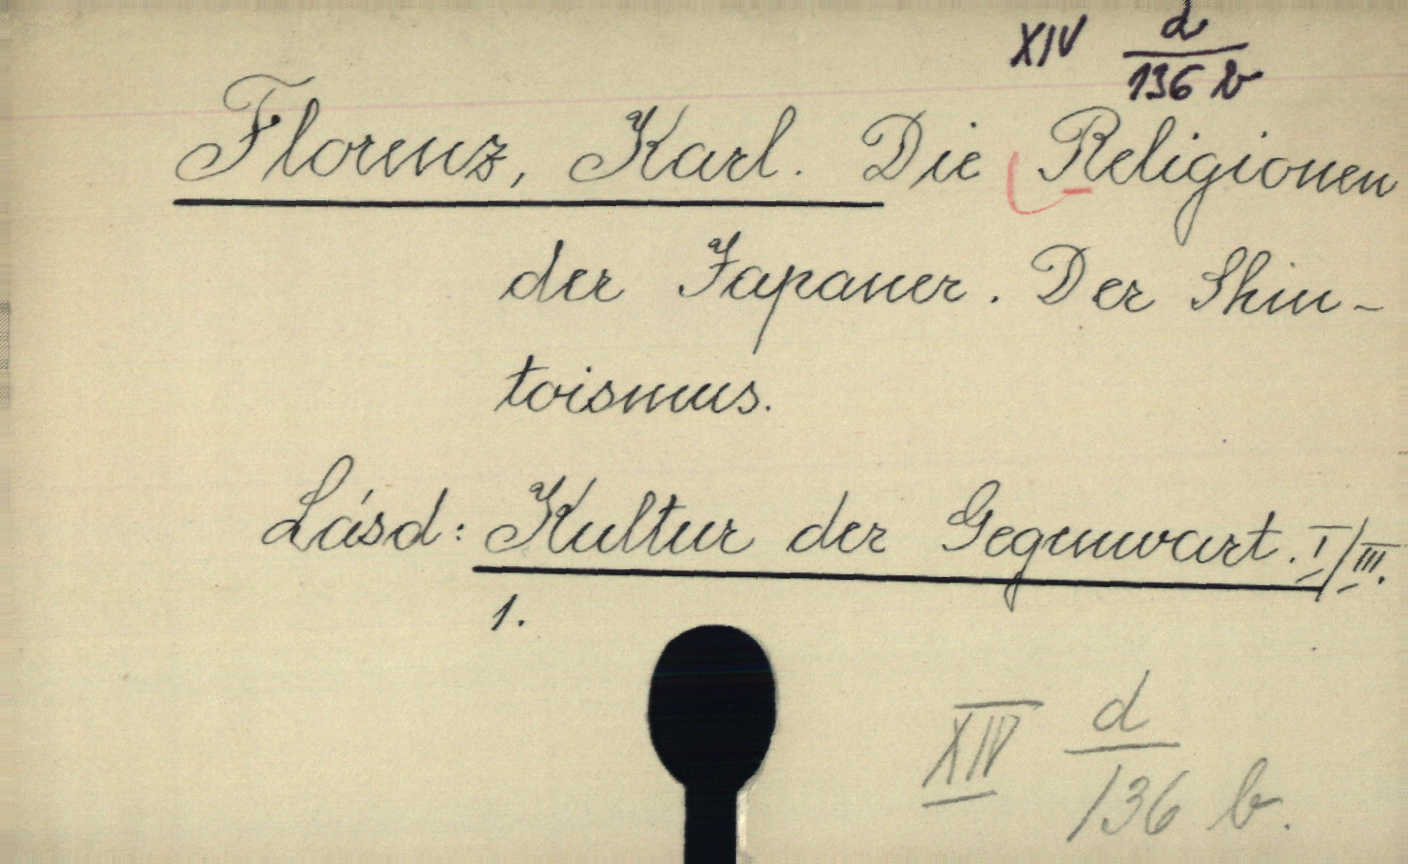 XIV d/136 b
Florenz, Karl. Die Religionen
der Japaner. Der Shin-
toismus.
Lásd: Kultur der Gegenwart. I/III.
1.
XIV d/136 b.